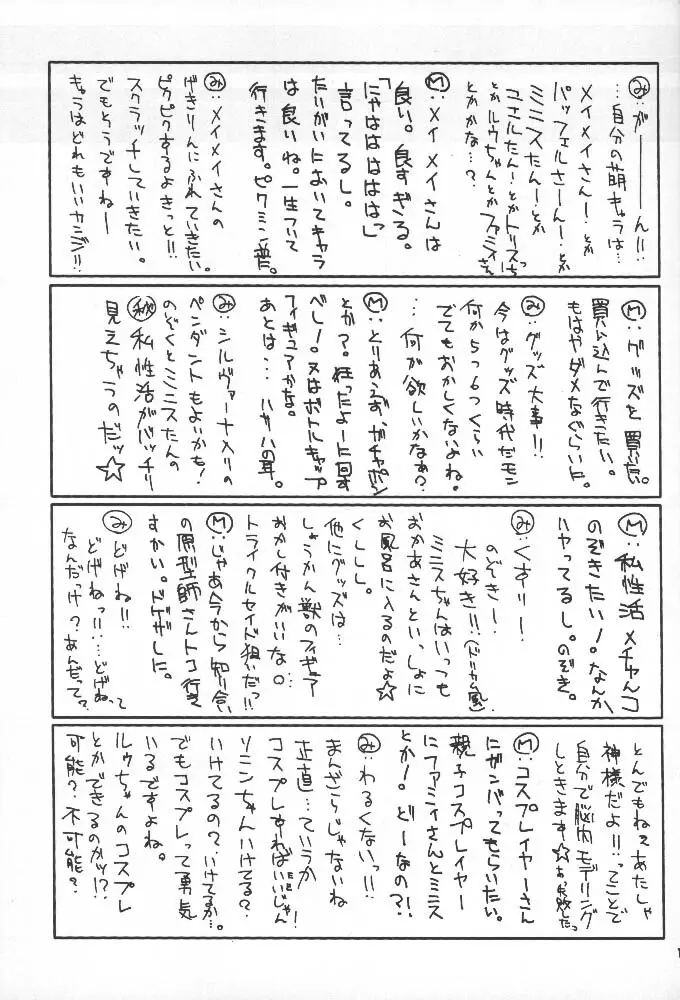 み:が―――ん!!
…自分の萌キャラは…
メイメイさん!とか
パッフェルさーん!とか
ミニスたん!とか
ユエルたん!とかトリスっち
とかルウちゃんとかファミィさん
とかかな…?
M:メイメイさんは
良い。良すぎる。
「にゃはははははっ」
言ってるし。
たいがいにおいてキャラ
は良いね。一生ついて
行きます。ピクミン並。
み:メイメイさんの
げきりんにふれていきたい。
ピクピクするよきっと!!
スクラッチしていきたい。
でもそうですねー
きゃらはどれもいいカンジ!!
M:グッズを買いたい。
買い込んで行きたい。
もはやダメなぐらいに。
み:グッズ大事!!
今はグッズ時代だモン
何から何つくらい
でてもおかしくないよね。
…何が欲しいかなぁ?
M:とりあえず、ガチャポン
とか?。狂ったよーに回す
べし!又はボトルキャップ
フィギュアかな。
あとは…ハサハの耳。
み:シルヴァーナメリの
ペンダントもよいかも!
のぞくとミニスたんの
㊙私性活がバッチリ
見えちゃうのだッ☆
M:私性活メチャんコ
のぞきたい!なんか
ハヤってるし。のぞき。
み:くすりー!
のぞきー!
大好き!!(ドリカム風)
ミニスちゃんはいつも
おかあさんといっしょに
お風呂に入るのだよ☆
くししし。
他にグッズは…
しょうかん獣のフィギュア
おかし付きがいいな。…
トライクルセイド狙いだっ!!
M:じゃあ今から知り合い
の原型師さんトコ行き
ますかい。ドゲザしに。
み:どげね!!
どげねっ!!…どげねって
なんだっけ?あんだって?
とんでもねえあたしゃ
神様だよ!!…ってことで
自分で脳内モデリング
しときます☆あ、失敗した。
M:コスプレイヤーさん
にガンバってもらいたい。
親子コスプレイヤー
にファミィさんとミニス
とか!どーなの?!
み:わるくないっ!!
まんざらじゃないね
正直…ていうか
コスプレすればいいじゃん!
ソニンちゃんいけてる?
いけてるの?いけてるか…。
でもコスプレって勇気
いるですよね。
ルゥちゃんのコスプレ
とかできるのかッ!?
可能?不可能?